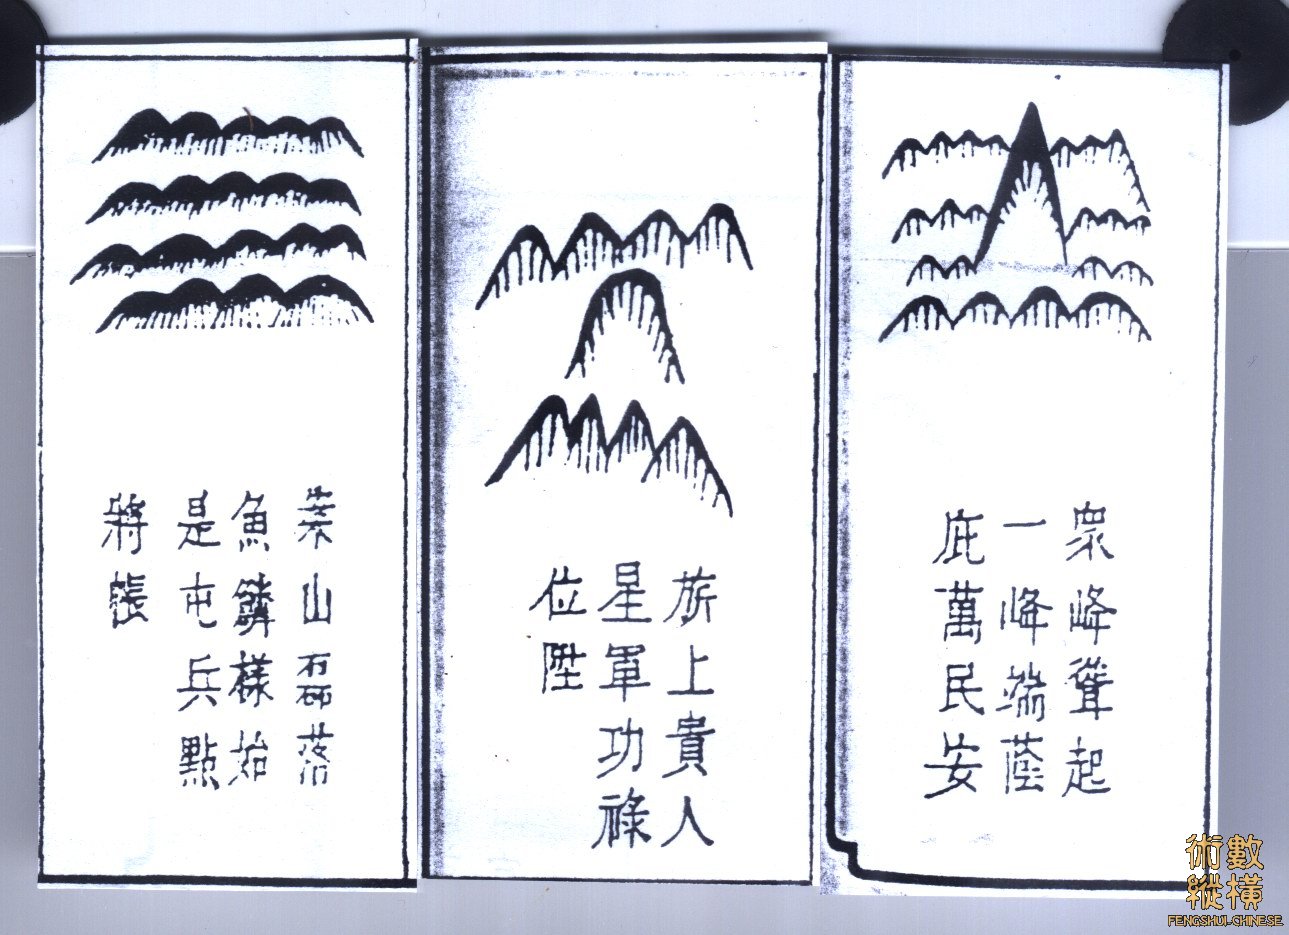 眾峰聳起
一峰端蔭
庇萬民安
旂上貴人
星軍功祿
位陞
案山磊落
魚鱗樣始
是屯兵點
將帳
術數
縱橫
FENGSHUI-CHINESE